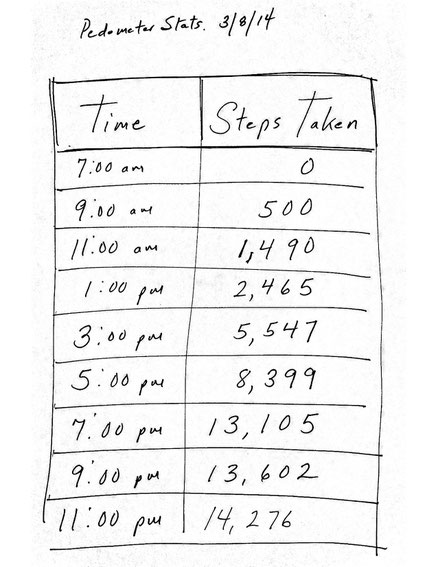 Pedometer Stats. 3/8/14
Time Steps Taken
7:00 am 0
9:00 am 500
11:00 am 1,490
1:00 pm 2,465
3:00 pm 5,547
5:00 pm 8,399
7:00 pm 13,105
9:00 pm 13,602
11:00 pm 14,276